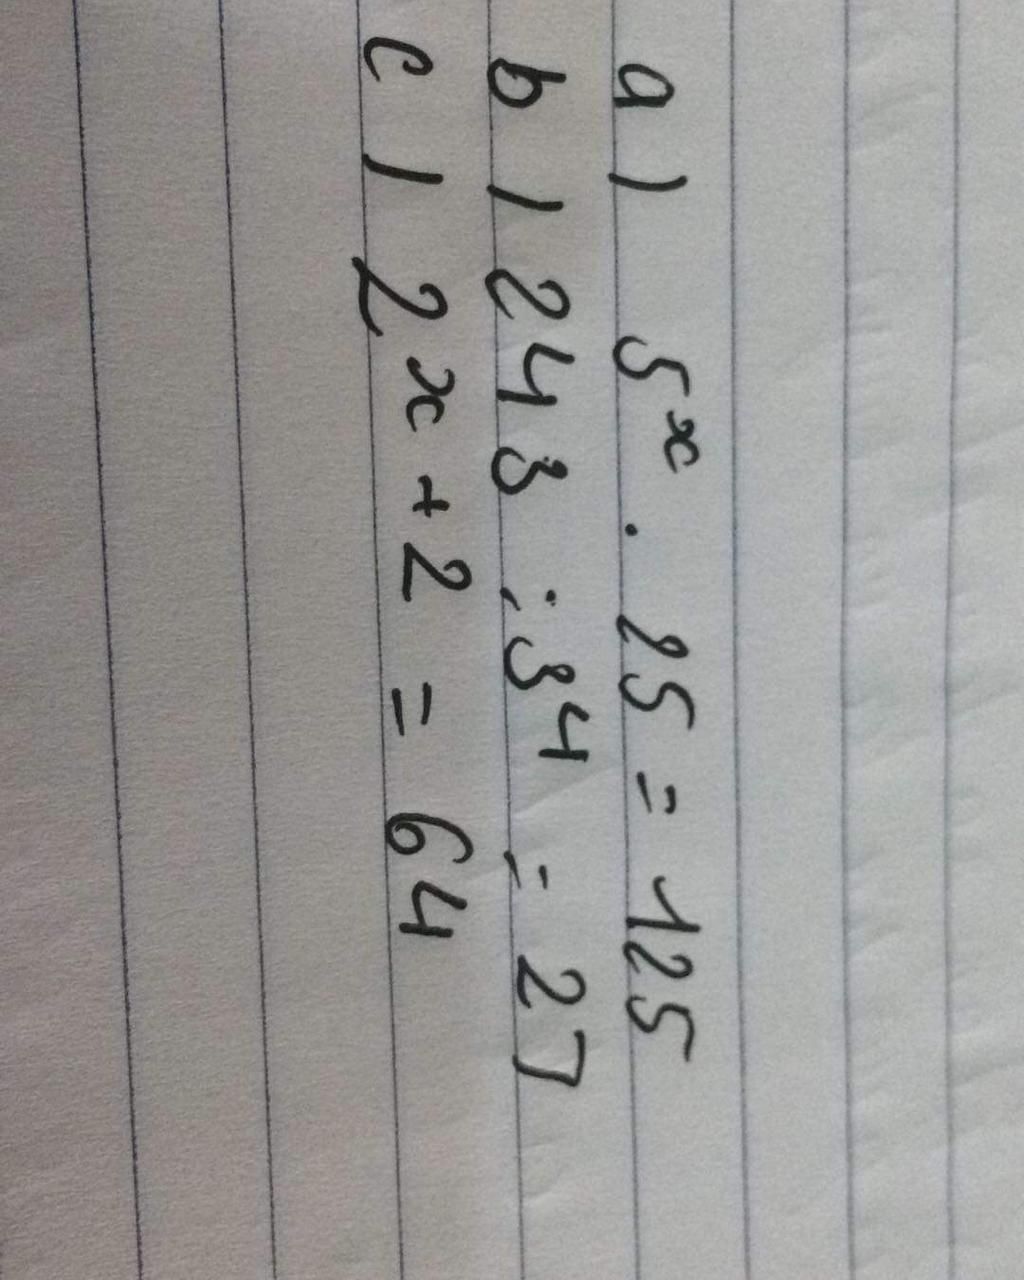 a) 5ˣ . 25 = 125
b) 243 : 3⁴ = 27
c) 2ˣ⁺² = 64